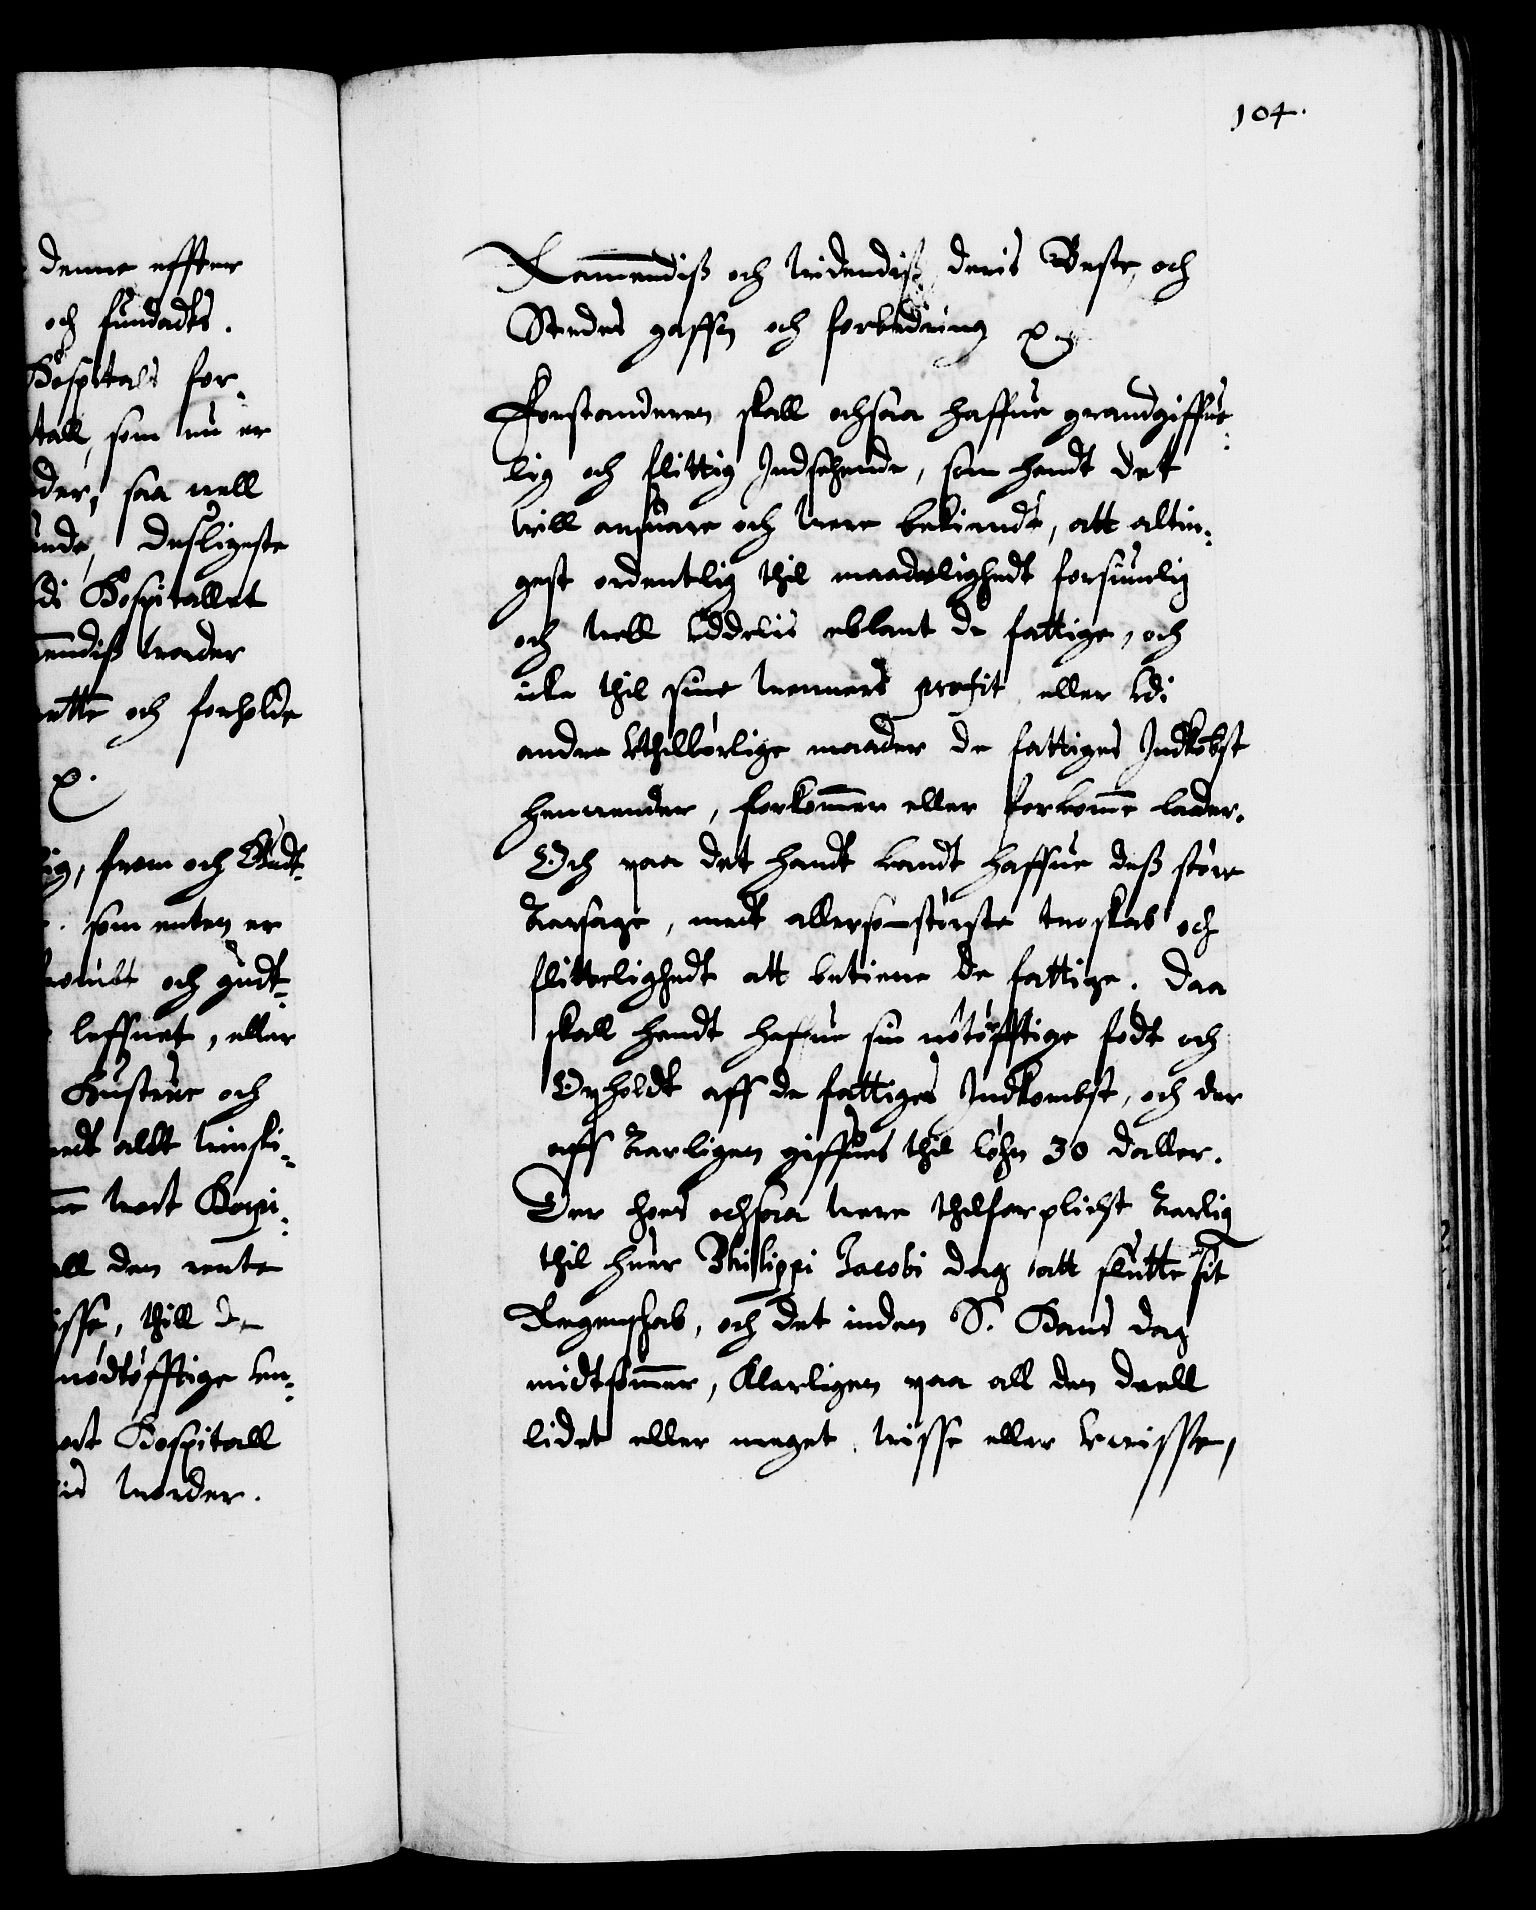 denne effter
och fundadts.
Hospitals for-
tall, som nu er
der, saa well
unde, desligeste
di Hospitallet
endiß worder
ette och forholde
ig, from och Gudt-
som enten er
och gudt-
leffnet, eller
Hustrue och
edt allt
wort Hospi-
all den rente
isse, thill de
nødtøfftige
ort Hospitall
is worder.
104.
Rammendiß och widendiß, deris Beste, och
Stedes gaffn och forbedring
Forstanderen skall ochsaa haffue grandgiffue-
lig och flittig Indseende, som handt det
will ansuare och were bekiendt, att altin-
gest ordentlig thil maadelighedt forsumlig
och well Uddelis eblant de fattige, och
icke thil sine wenners profit eller Udi
andre Uthilbørlige maader de fattiges Indkobst
henwender, forkommer eller forkomme lader.
Och paa det handt kandt haffue deß større
Aarsage, medt allersomstørste troskab och
flittelighedt att betiene de fattige. Daa
skall handt hafue sin nøtøfftige födt och
Opholdt aff de fattiges Indkombst, och der
aff Aarligen giffues thil løhn 30 daller.
Der hoes ochsaa were thilforplicht Aarlig
thil huer Philippi Jacobi dag att slutte sit
Regenskab, och det inden S. Hans dag
midtsommer, Klarligen paa all den deell
lidet eller meget, wisse eller Uwisse,